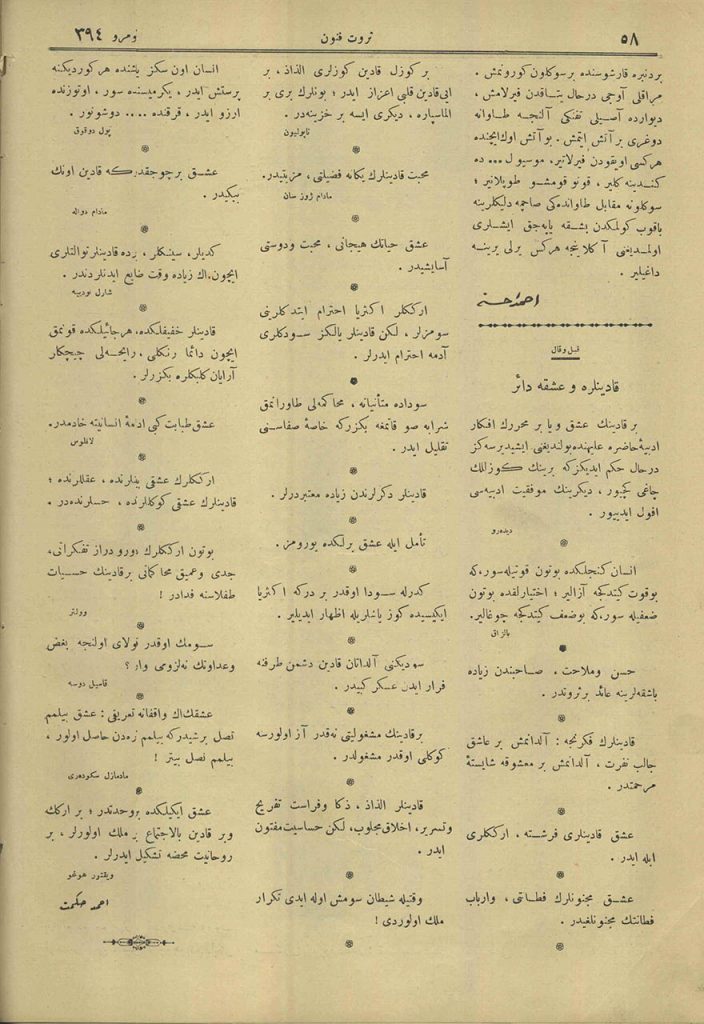 ٥٨
ثروت فنون
نومرو ٣٩٤
بردنبره قارشوسنده برسوكلون كورونمش.
مراقلى آوجى درحال يتاقدن فيرلامش،
ديوارده آصيلى تفنكى آلنجه طاوانه
دوغرى بر آتش ايتمش. بو آتش اوك ايچنده
هركسى اويقودن فيرلاتير. موسيول... ده
كندينه كلير، قونو قومشو طوپلانير؛
سوكلونه مقابل طاوانده كى صاچمه دليكلرينه
باقوب كولمكدن بشقه ياپه جق ايشلرى
اولمديغنى آكلاينجه هركس يرلى يرينه
داغيلير.
احمد احسان
قيل وقال
قادينلره و عشقه دائر
بر قادينك عشق ويا بر محررك افكار
ادبيهٔ حاضره عليهنده بولنديغنى ايشيديرسه كز
درحال حكم ايديكزكه برينك كوزللك
چاغى كچيور، ديكرينك موفقيت ادبيه سى
افول ايدييور.
ديده رو
انسان كنجلكده بوتون قوتيله سور، كه
بوقوت كيتدكجه آزالير؛ اختيارلقده بوتون
ضعفيله سور، كه بوضعف كيتدكجه چوغالير.
بالزاق
حسن وملاحت، صاحبندن زياده
باشقه لرينه عائد بر ثروتدر.
قادينلرك فكرنجه: آلدانمش بر عاشق
جالب نفرت، آلدانمش بر معشوقه شايستهٔ
مرحمتدر.
عشق قادينلرى فرشته، ارككلرى
ابله ايدر.
عشق مجنونلرك فطانتى، وارباب
فطانتك مجنونلغيدر.
بر كوزل قادين كوزلرى الذاذ، بر
ايى قادين قلبى اعزاز ايدر؛ بونلرك برى بر
الماسپاره، ديكرى ايسه بر خزينه در.
ناپوليون
محبت قادينلرك يكانه فضيلتى، مزيتيدر.
مادام ژورژ سان
عشق حياتك هيجانى، محبت ودوستى
آسايشيدر.
ارككلر اكثريا احترام ايتدكلرينى
سومزلر، لكن قادينلر يالكز سودكلرى
آدمه احترام ايدرلر.
سوداده متأنيانه، محاكمه لى طاورانمق
شرابه صو قاتمغه بكزركه خاصهٔ صفاسنى
تقليل ايدر.
قادينلر دكرلرندن زياده معتبردرلر.
تأمل ايله عشق برلكده يورومز.
كدرله سودا اوقدر بر دركه اكثريا
ايكيسيده كوز ياشلريله اظهار ايديلير.
سوديكنى آلداتان قادين دشمن طرفنه
فرار ايدن عسكر كبيدر.
بر قادينك مشغوليتى نه قدر آز اولورسه
كوكلى اوقدر مشغولدر.
قادينلر الذاذ، ذكا وفراست تفريح
وتسرير، اخلاق مجلوب، لكن حساسيت مفتون
ايدر.
وقتيله شيطان سومش اوله ايدى تكرار
ملك اولوردى!
انسان اون سكز ياشنده هر كورديكنه
پرستش ايدر، يكرميسنده سور، اوتوزنده
ارزو ايدر، قرقنده .... دوشونور.
پول دوقوق
عشق بر چوجقدركه قادين اونك
ببكيدر.
كديلر، سينكلر، برده قادينلر توالتلرى
ايچون، اك زياده وقت ضايع ايدنلردندر.
شارل نوديه
قادينلر خفيفلكده، هرجائيلكده قونمق
ايچون دائما رنكلى، رايحه لى چيچكلر
آرايان كلبكلره بكزرلر.
عشق طبابت كبى ادمهٔ انسانيته خادمدر.
ارككلرك عشقى بيٰنلرنده، عقللرنده؛
قادينلرك عشقى كوكللرنده، حسلرنده در.
بوتون ارككلرك دورو دراز تفكراتى،
جدى وعميق محاكماتى بر قادينك حسيات
طفلانه سنه فدادر!
وولتر
سومك اوقدر قولاى اولنجه بغض
وعداوتك نه لزومى وار؟
عشقك اك واقفانه تعريفى: عشق بيلمم
نصل بر شيدركه بيلمم نره دن حاصل اولور،
بيلمم نصل بيتر!
مادمازل سكودهرى
عشق ايكيلكده بر وحدتدر؛ بر اركك
وبر قادين بالاجتماع بر ملك اولورلر، بر
روحانيت محضه تشكيل ايدرلر.
ويقتور هوغو
احمد حكمت